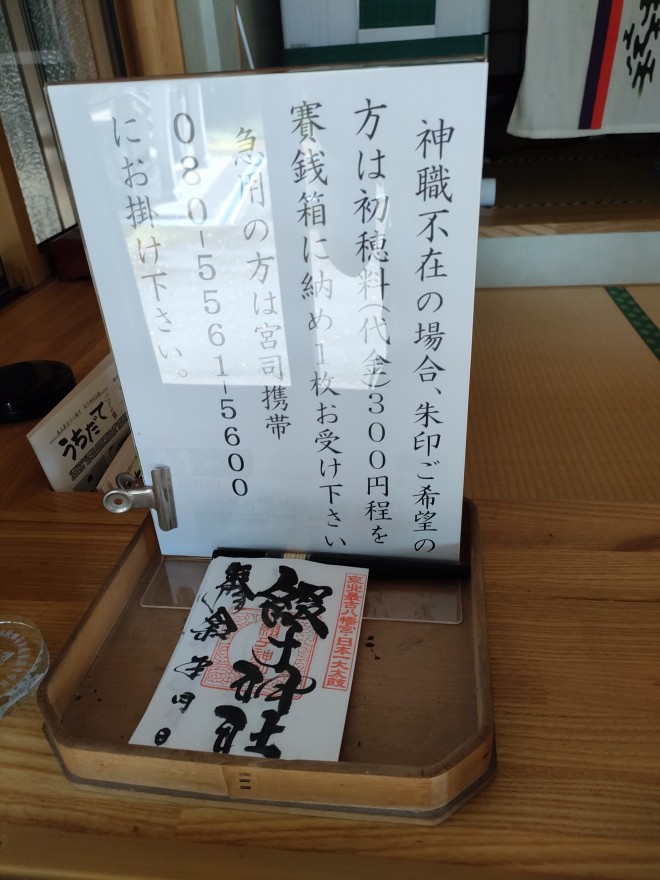 神職不在の場合、朱印ご希望の
方は初穂料(代金)300円程を
賽銭箱に納め1枚お受け下さい
急用の方は宮司携帯
080-5561-5600
にお掛け下さい。
東北最古八幡宮・日本一大太鼓
綴子神社
奉拝 年 月 日
うちだて